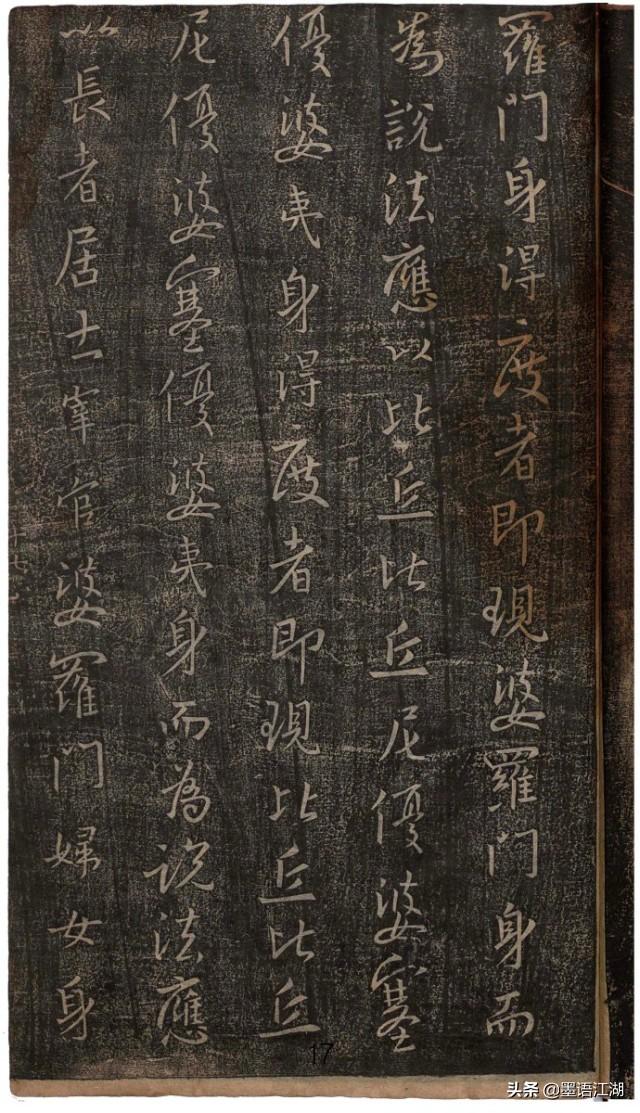 羅門身得度者即現婆羅門身而
為說法應以比丘比丘尼優婆塞
優婆夷身得度者即現比丘比丘
尼優婆塞優婆夷身而為說法應
以長者居士宰官婆羅門婦女身
17
头条 @墨语江湖